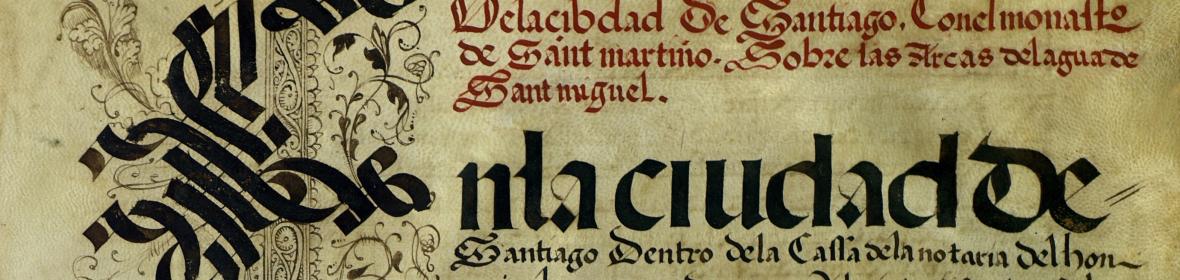 Delacibdad De Santiago. Conelmonaste
de Sant martiño. Sobre las Arcas delaguade
Sant miguel.
nla ciudad de
Santiago Dentro dela Cassa dela notaria del hon-